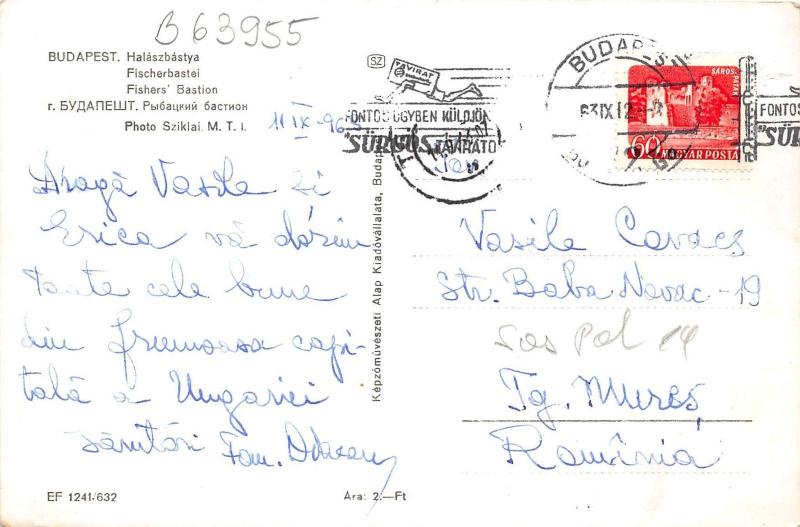 B 63955
BUDAPEST. Halászbástya
Fischerbastei
Fishers' Bastion
г. БУДАПЕШТ. Рыбацкий бастион
Photo Sziklai, M. T. I.
11 IX - 963
Dragă Vasile si
Erica vă dorim
toate cele bune
din frumoasa capi-
tală a Ungariei
Fam.
EF 1241/632
Ára: 2.—Ft
Képzőművészeti Alap Kiadóvállalata, Budapest
SZ
TÁVIRAT
FONTOS ÜGYBEN KÜLDJÖN
"SÜRGŐS" TÁVIRATOT
BUDAPEST
63 IX 12
SÁROSPATAK
60
MAGYAR POSTA
FONTOS
"SÜ
Vasile Covacs
Str. Baba Novac - 19
Tg. Mureș
România